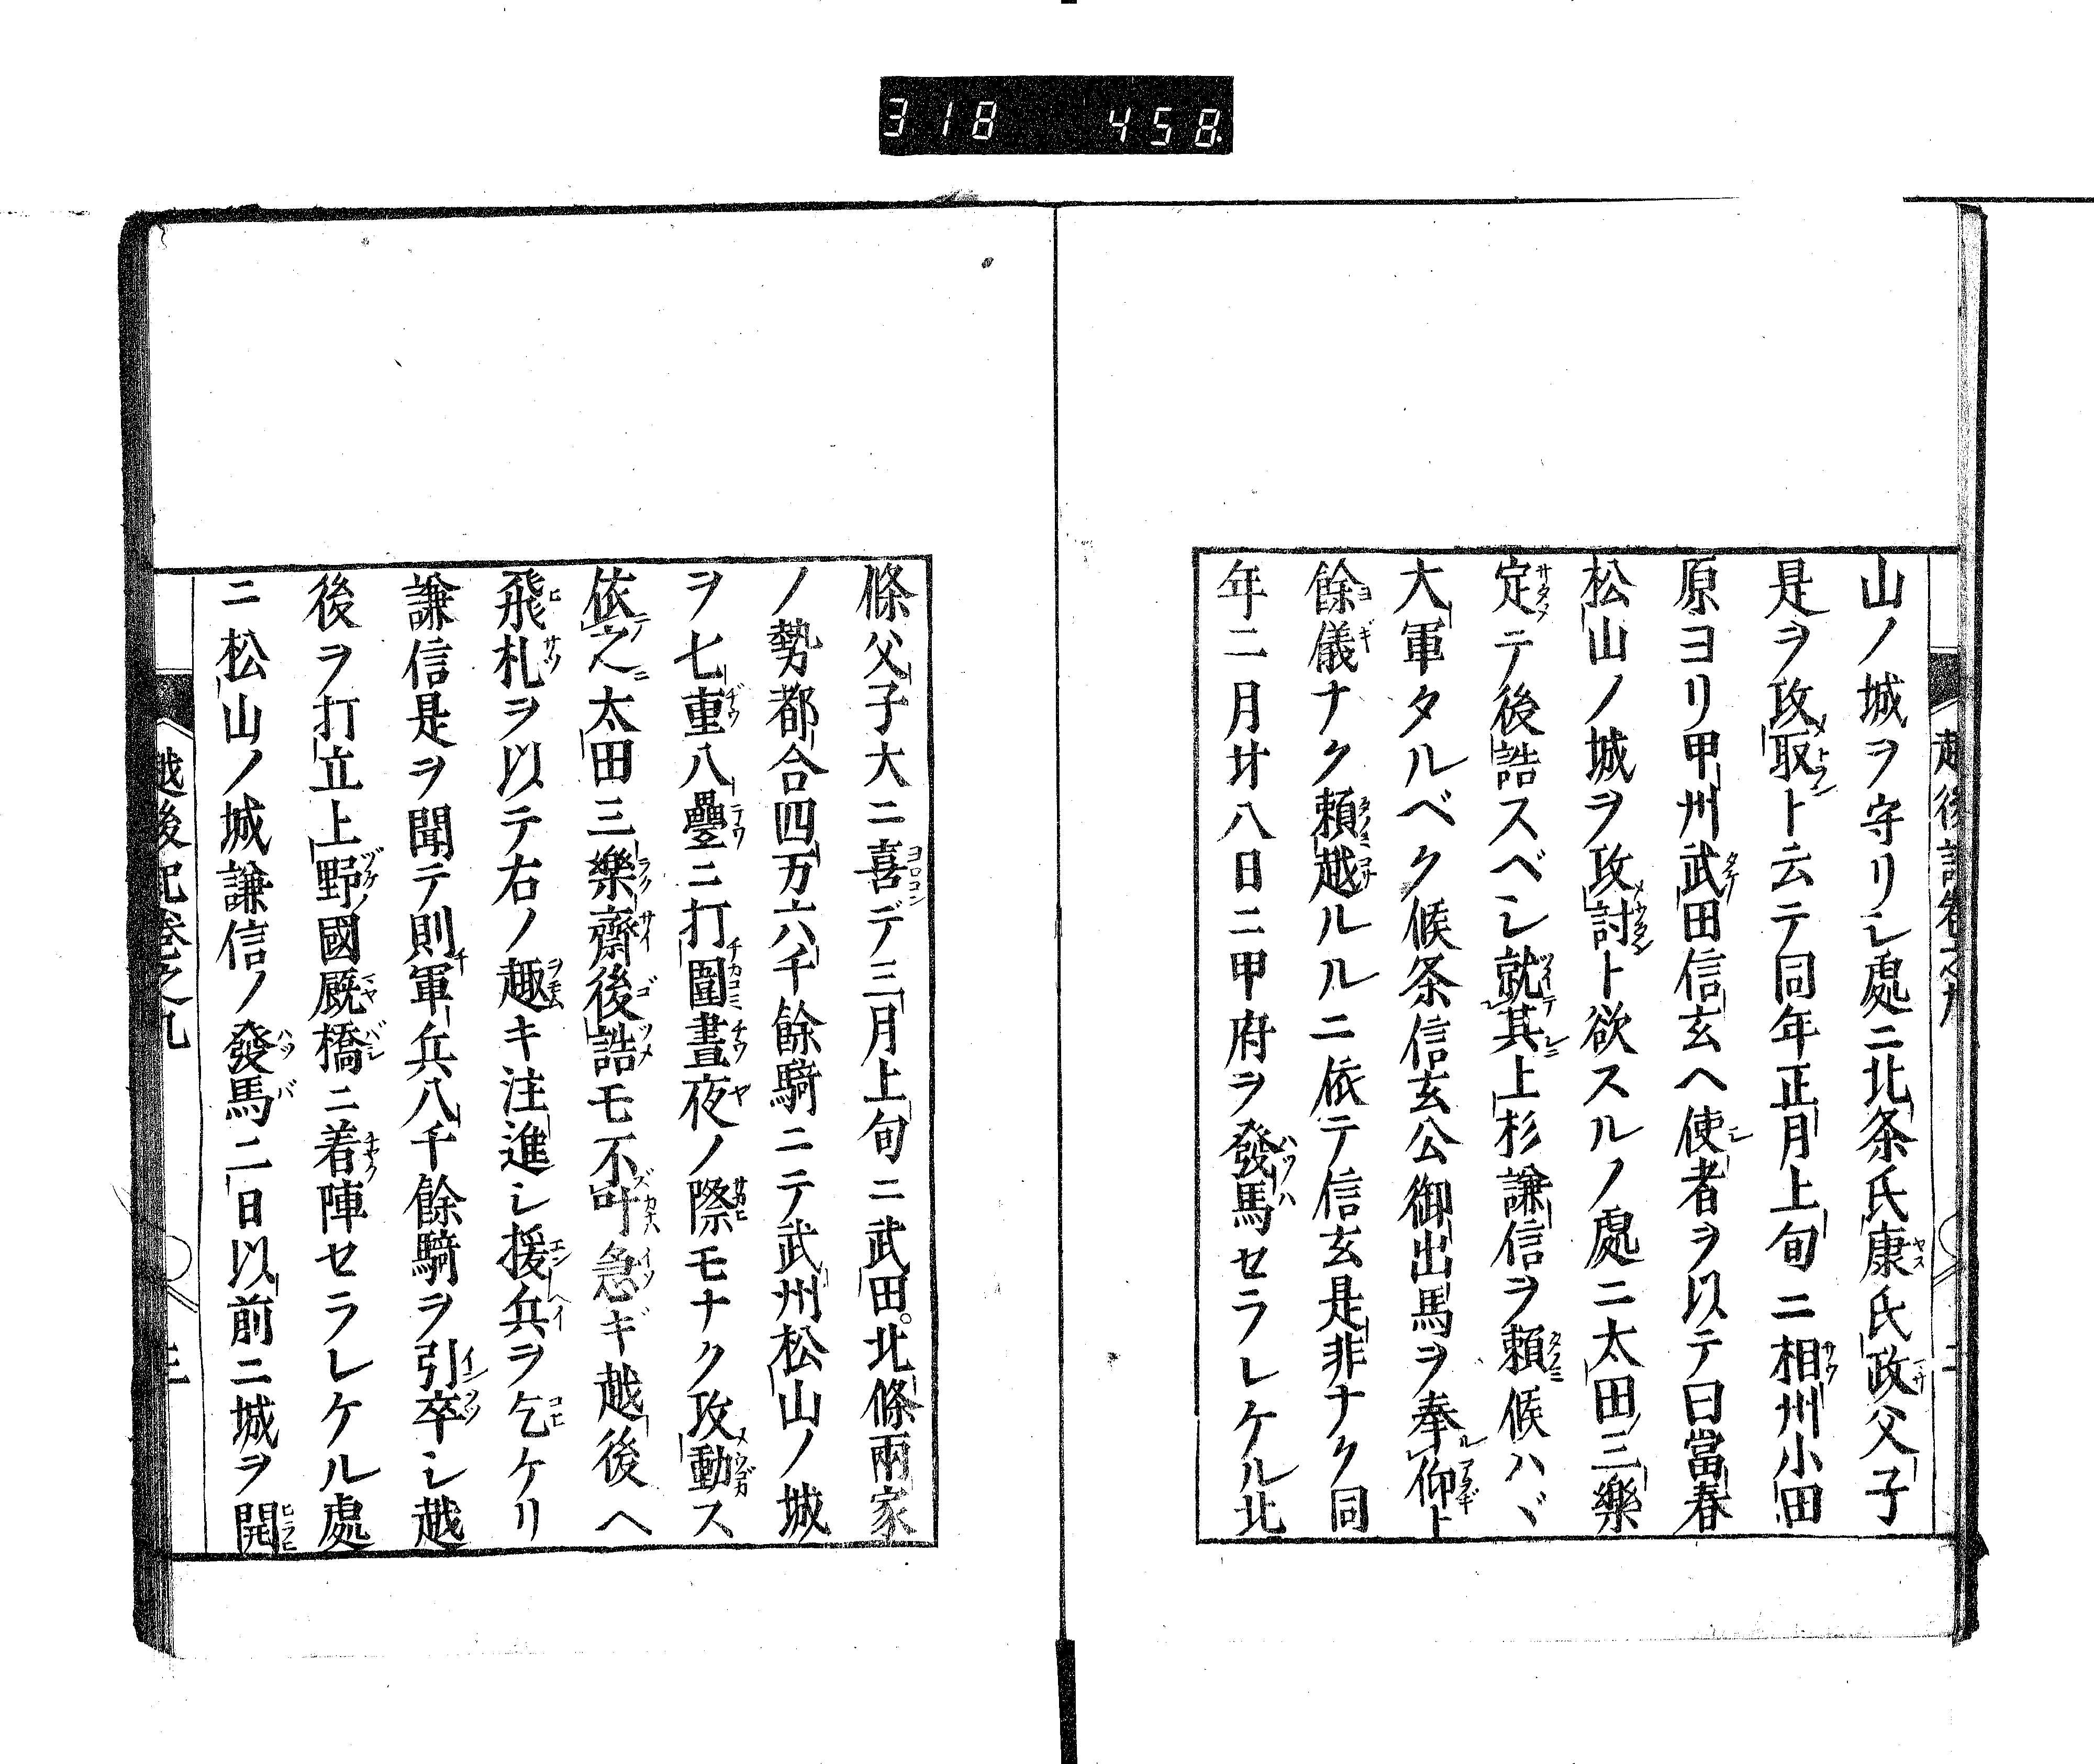 318 458
山ノ城ヲ守リシ處ニ北条氏康氏政父子
是ヲ攻取ト云テ同年正月上旬ニ相州小田
原ヨリ甲州武田信玄ヘ使者ヲ以テ曰當春
松山ノ城ヲ攻討ト欲スルノ處ニ太田三樂
定テ後詰スベシ就其上杉謙信ヲ頼候ハヾ
大軍タルベク候条信玄公御出馬ヲ奉仰ト
餘儀ナク頼越ルルニ依テ信玄是非ナク同
年二月廿八日ニ甲府ヲ發馬セラレケル北
條父子大ニ喜デ三月上旬ニ武田。北條兩家
ノ勢都合四万六千餘騎ニテ武州松山ノ城
ヲ七重八疊ニ打圍晝夜ノ際モナク攻動ス
依之太田三樂齋後詰モ不叶急ギ越後ヘ
飛札ヲ以テ右ノ趣キ注進シ援兵ヲ乞ケリ
謙信是ヲ聞テ則軍兵八千餘騎ヲ引卒シ越
後ヲ打立上野國厩橋ニ着陣セラレケル處
ニ松山ノ城謙信ノ發馬二日以前ニ城ヲ開
越後記卷之九
三